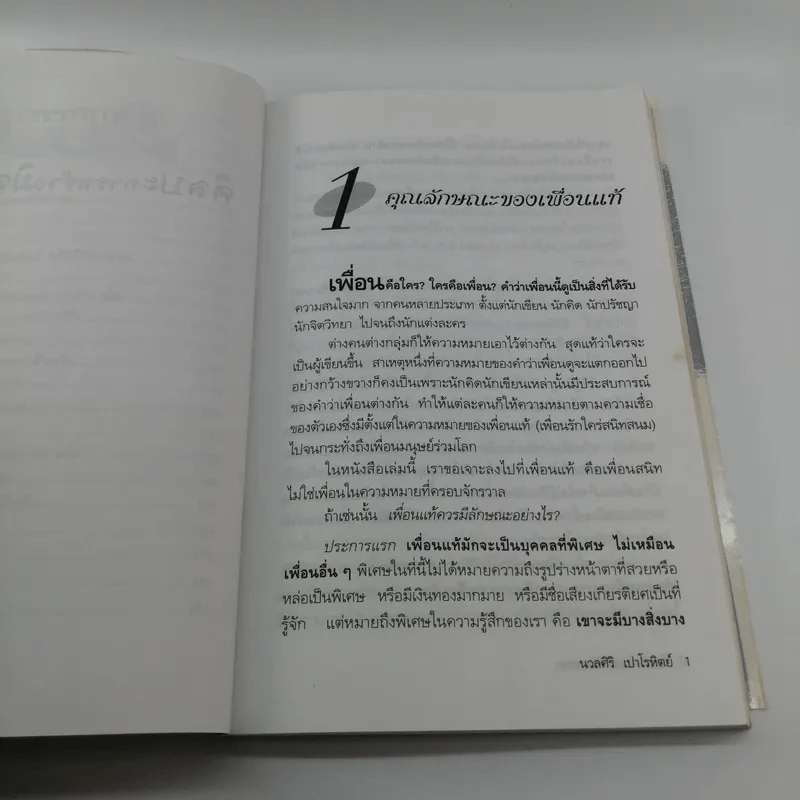 1
คุณลักษณะของเพื่อนแท้
เพื่อนคือใคร? ใครคือเพื่อน? คำว่าเพื่อนนี้ดูเป็นสิ่งที่ได้รับ
ความสนใจมาก จากคนหลายประเภท ตั้งแต่นักเขียน นักคิด นักปรัชญา
นักจิตวิทยา ไปจนถึงนักแต่งละคร
ต่างคนต่างกลุ่มก็ให้ความหมายเอาไว้ต่างกัน สุดแท้ว่าใครจะ
เป็นผู้เขียนขึ้น สาเหตุหนึ่งที่ความหมายของคำว่าเพื่อนดูจะแตกออกไป
อย่างกว้างขวางก็คงเป็นเพราะนักคิดนักเขียนเหล่านั้นมีประสบการณ์
ของคำว่าเพื่อนต่างกัน ทำให้แต่ละคนก็ให้ความหมายตามความเชื่อ
ของตัวเองซึ่งมีตั้งแต่ในความหมายของเพื่อนแท้ (เพื่อนรักใคร่สนิทสนม)
ไปจนกระทั่งถึงเพื่อนมนุษย์ร่วมโลก
ในหนังสือเล่มนี้ เราขอเจาะลงไปที่เพื่อนแท้ คือเพื่อนสนิท
ไม่ใช่เพื่อนในความหมายที่ครอบจักรวาล
ถ้าเช่นนั้น เพื่อนแท้ควรมีลักษณะอย่างไร?
ประการแรก เพื่อนแท้มักจะเป็นบุคคลที่พิเศษ ไม่เหมือน
เพื่อนอื่น ๆ พิเศษในที่นี้ไม่ได้หมายความถึงรูปร่างหน้าตาที่สวยหรือ
หล่อเป็นพิเศษ หรือมีเงินทองมากมาย หรือมีชื่อเสียงเกียรติยศเป็นที่
รู้จัก แต่หมายถึงพิเศษในความรู้สึกของเรา คือ เขาจะมีบางสิ่งบาง
นวลศิริ เปาโรหิตย์ 1